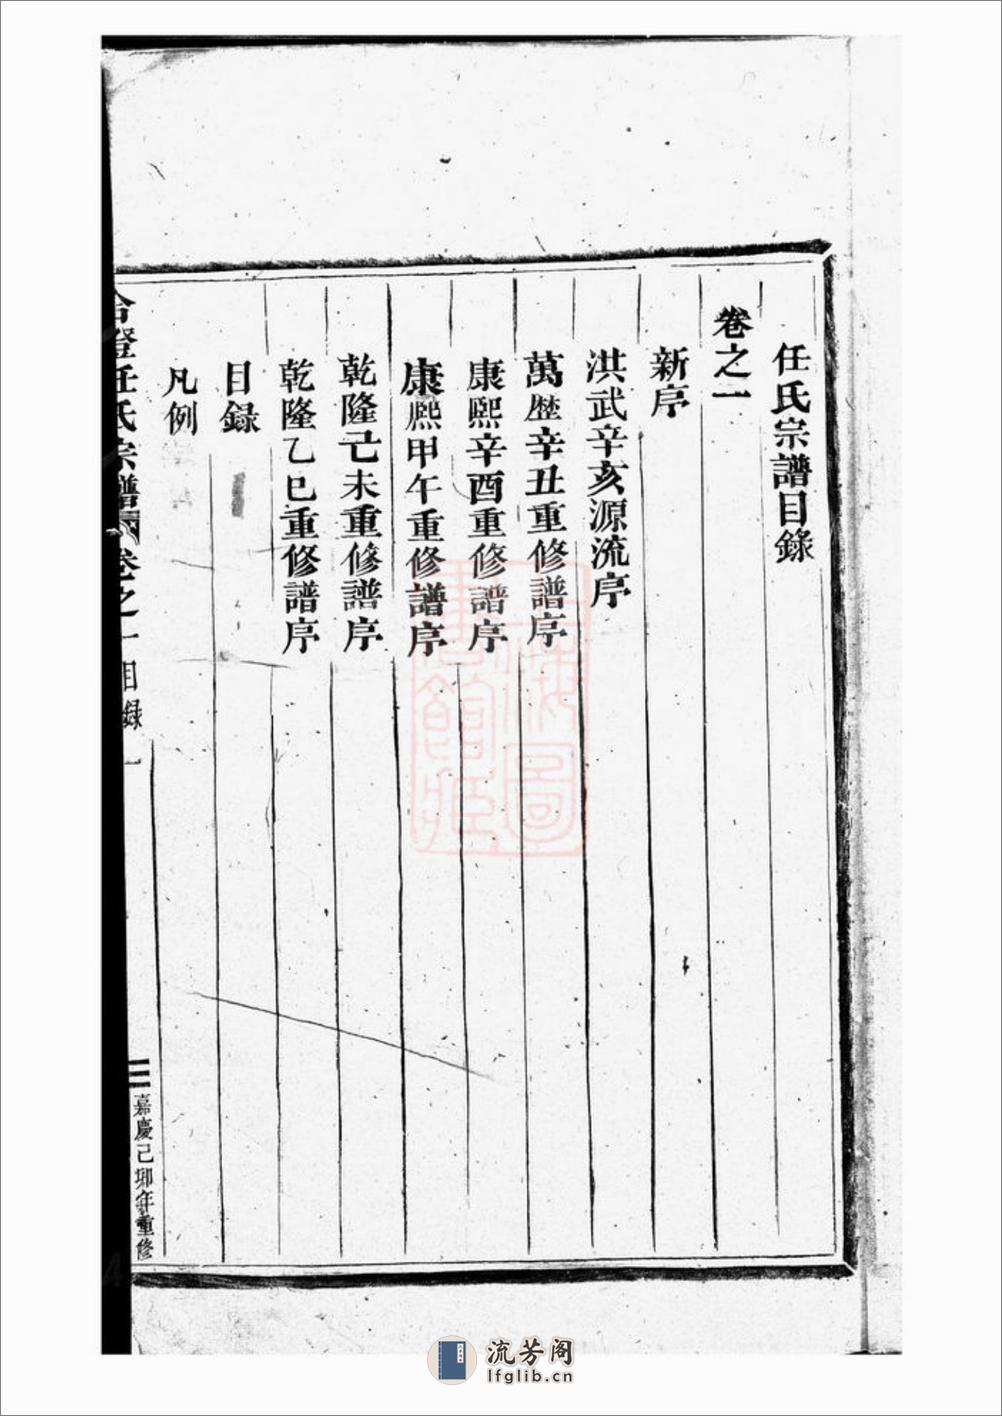 任氏宗譜目錄
卷之一
新序
洪武辛亥源流序
萬歷辛丑重修譜序
康熙辛酉重修譜序
康熙甲午重修譜序
乾隆己未重修譜序
乾隆乙巳重修譜序
目録
凡例
任氏宗譜
卷之一
目録
一
嘉慶己卯年重修
上海圖書館藏
流芳阁
lfglib.cn